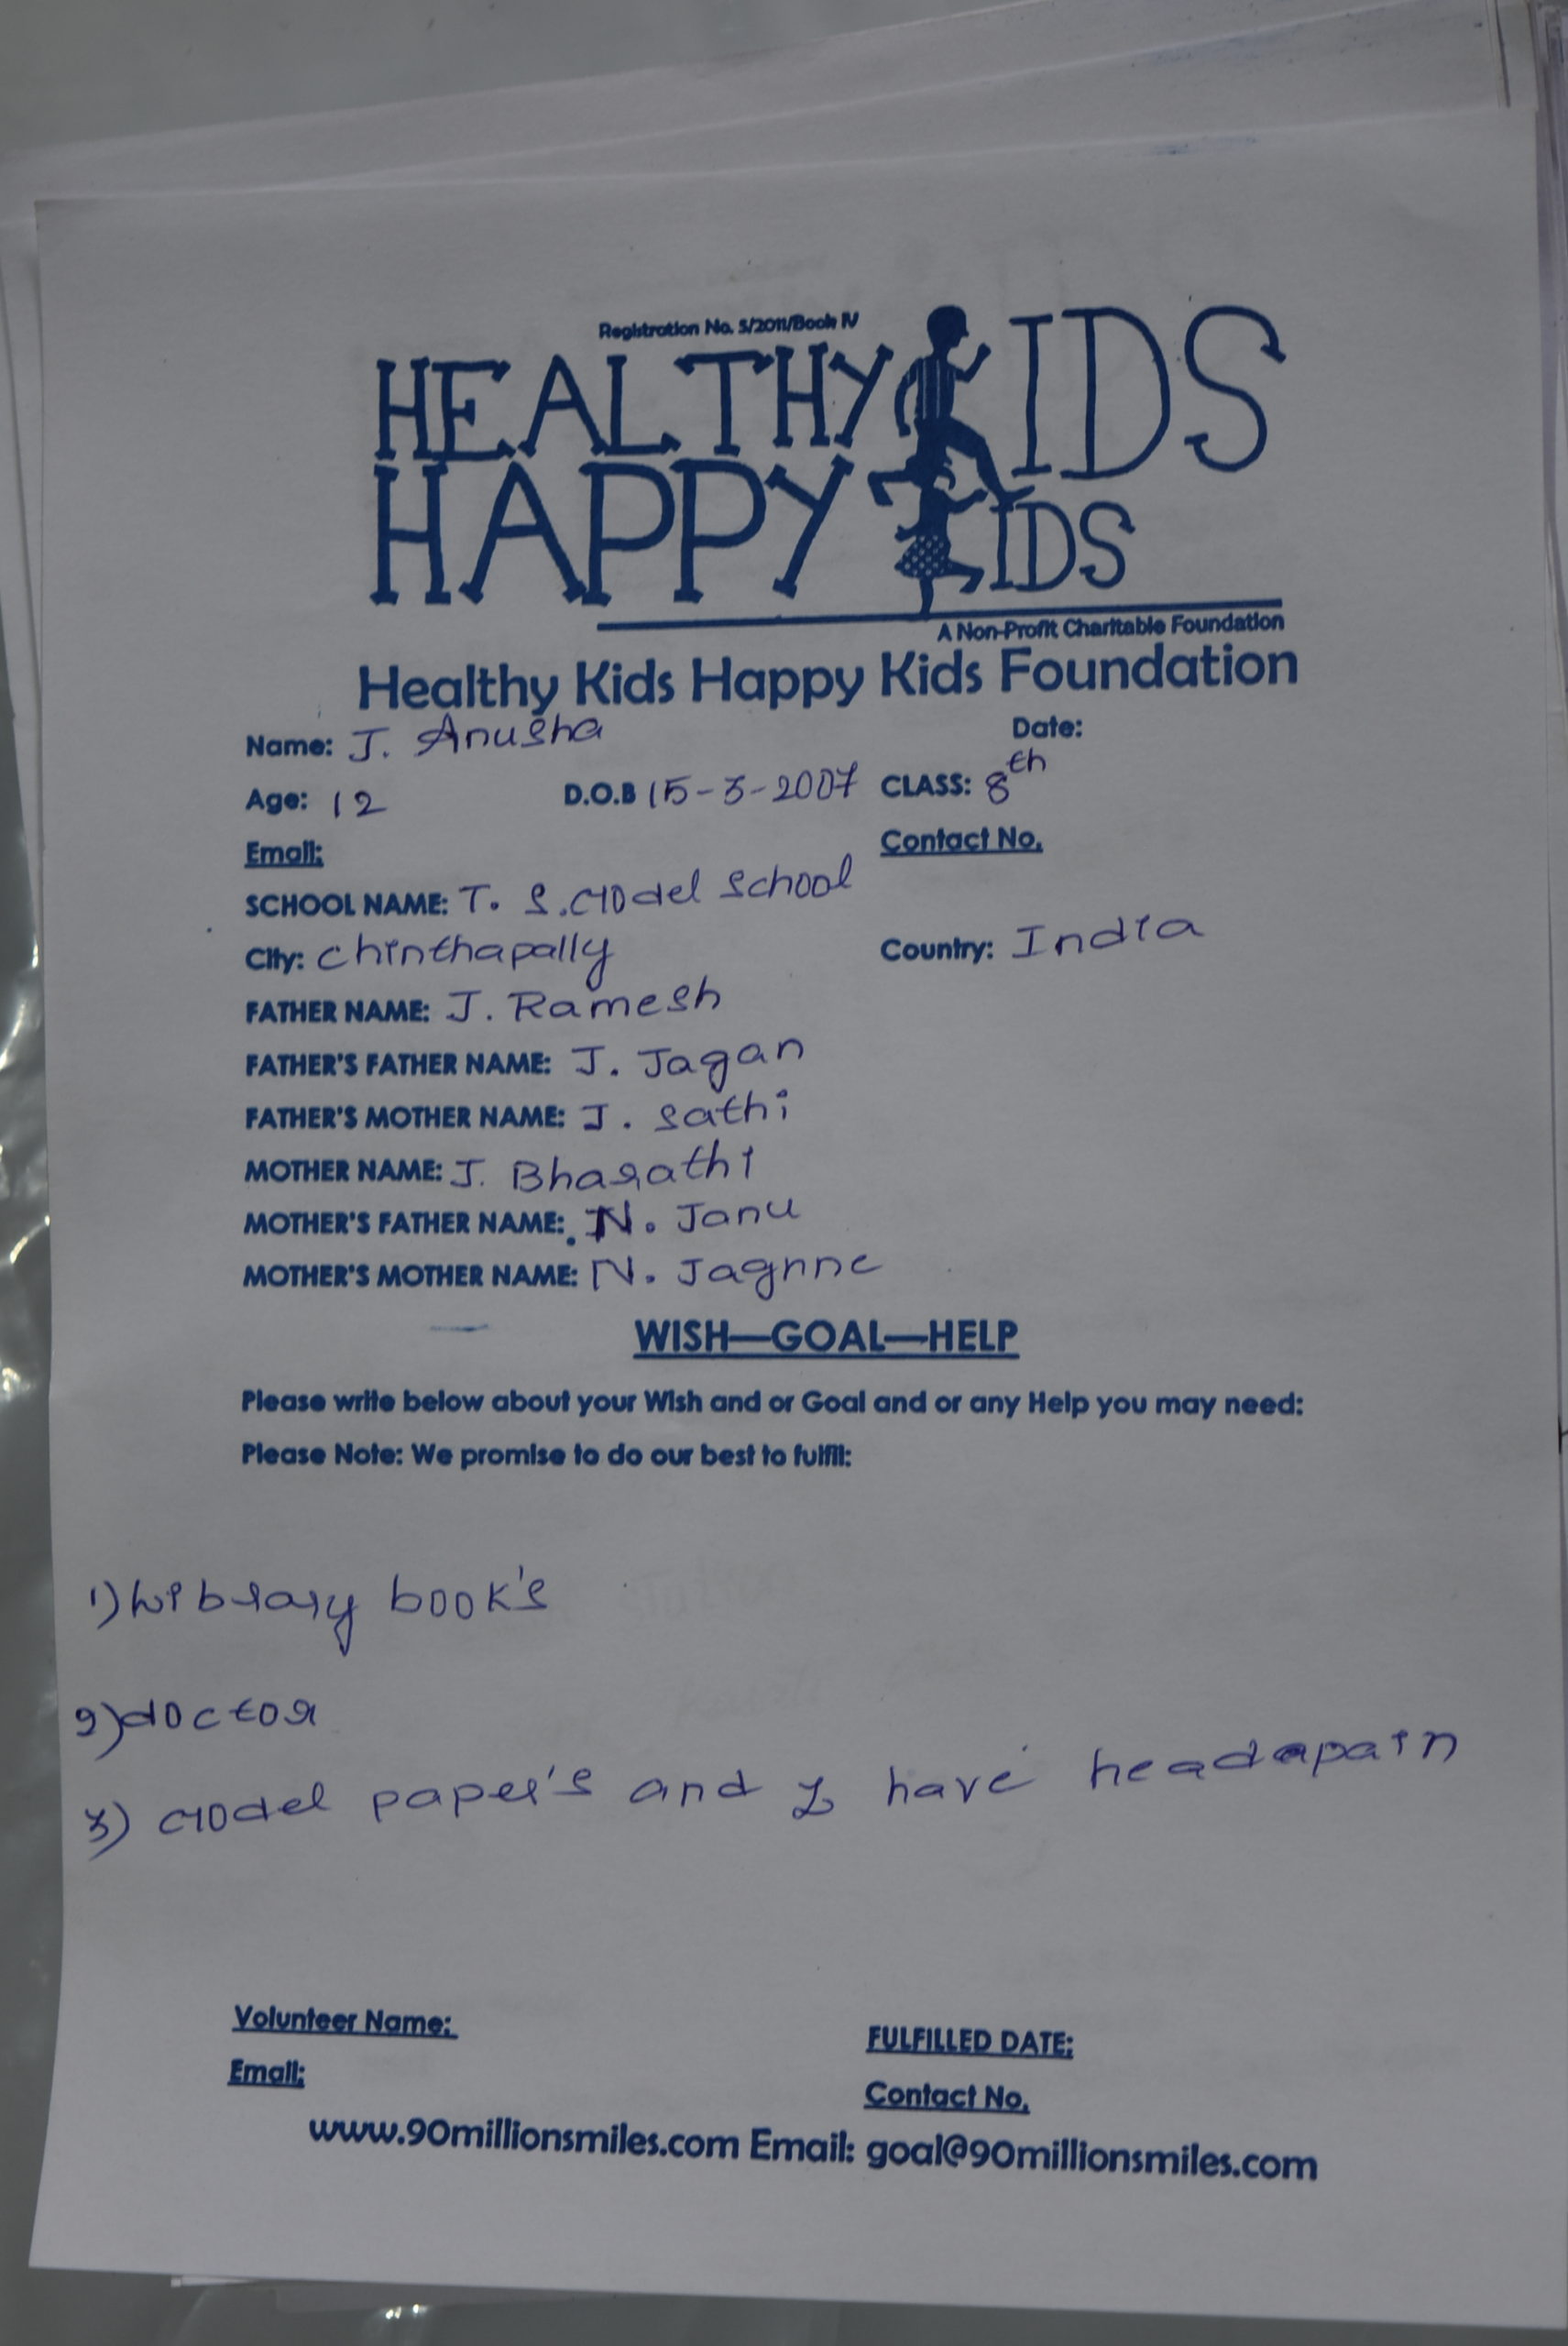 Registration No. 5/2011/Book IV
HEALTHY KIDS
HAPPY KIDS
A Non-Profit Charitable Foundation
Healthy Kids Happy Kids Foundation
Name: J. Anusha Date:
Age: 12 D.O.B 15-3-2007 CLASS: 8th
Email: Contact No.
SCHOOL NAME: T. S. Model School
City: Chinthapally Country: India
FATHER NAME: J. Ramesh
FATHER'S FATHER NAME: J. Jagan
FATHER'S MOTHER NAME: J. Sathi
MOTHER NAME: J. Bharathi
MOTHER'S FATHER NAME: N. Janu
MOTHER'S MOTHER NAME: N. Jagnne
WISH—GOAL—HELP
Please write below about your Wish and or Goal and or any Help you may need:
Please Note: We promise to do our best to fulfil:
1) Library book's
2) doctor
3) Model paper's and I have headapain
Volunteer Name: FULFILLED DATE:
Email: Contact No.
www.90millionsmiles.com Email: goal@90millionsmiles.com